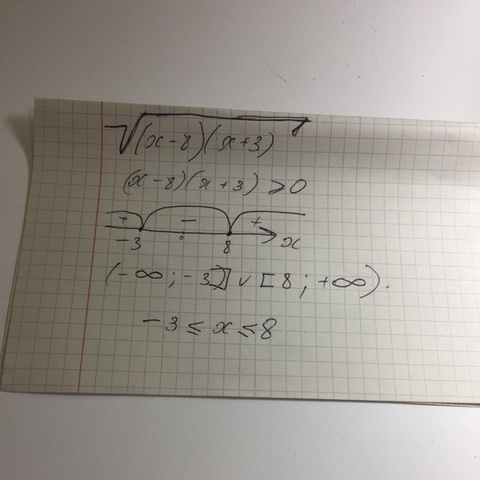 √(x-8)(x+3)
(x-8)(x+3) ⩾ 0
+ − +
-3 8 x
(-∞; -3] ∨ [8; +∞).
-3 ≤ x ≤ 8